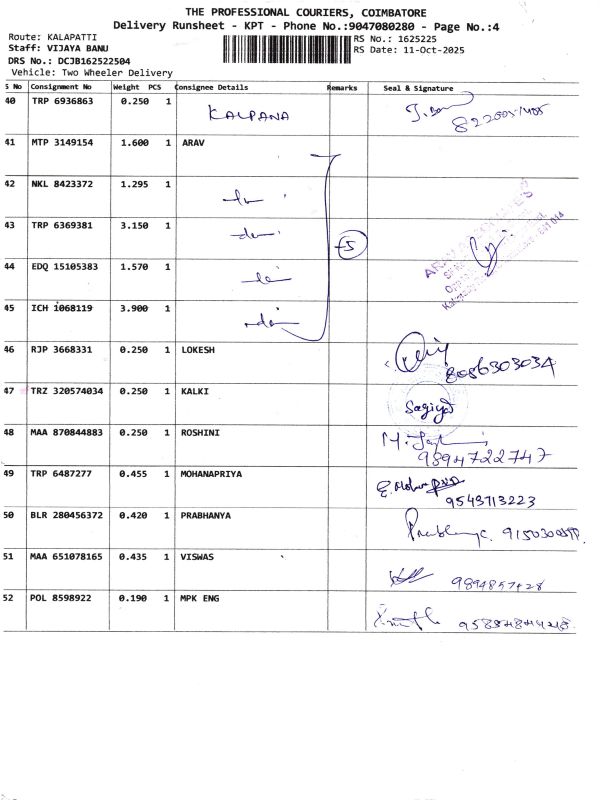 THE PROFESSIONAL COURIERS, COIMBATORE
Delivery Runsheet - KPT - Phone No.:9047080280 - Page No.:4
Route: KALAPATTI
Staff: VIJAYA BANU
DRS No.: DCJB162522504
Vehicle: Two Wheeler Delivery
RS No.: 1625225
RS Date: 11-Oct-2025
S No Consignment No Weight PCS Consignee Details Remarks Seal & Signature
40 TRP 6936863 0.250 1 KALPANA
41 MTP 3149154 1.600 1 ARAV
42 NKL 8423372 1.295 1
43 TRP 6369381 3.150 1
44 EDQ 15105383 1.570 1
45 ICH 1068119 3.900 1
46 RJP 3668331 0.250 1 LOKESH
8056303034
47 TRZ 320574034 0.250 1 KALKI
48 MAA 870844883 0.250 1 ROSHINI
9894722747
49 TRP 6487277 0.455 1 MOHANAPRIYA
9543713223
50 BLR 280456372 0.420 1 PRABHANYA
51 MAA 651078165 0.435 1 VISWAS
52 POL 8598922 0.190 1 MPK ENG